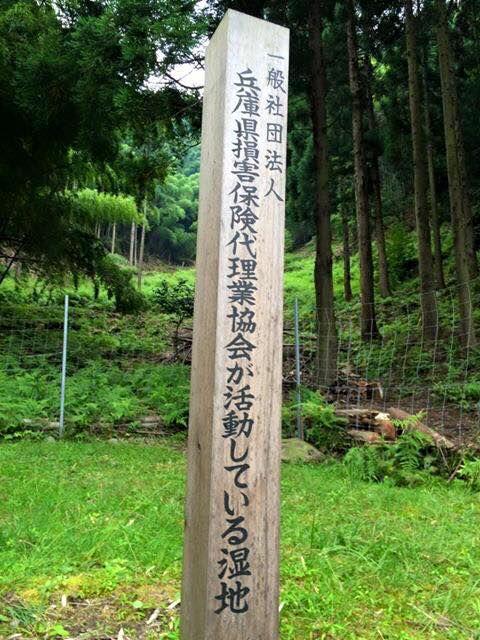 一般社団法人
兵庫県損害保険代理業協会が活動している湿地